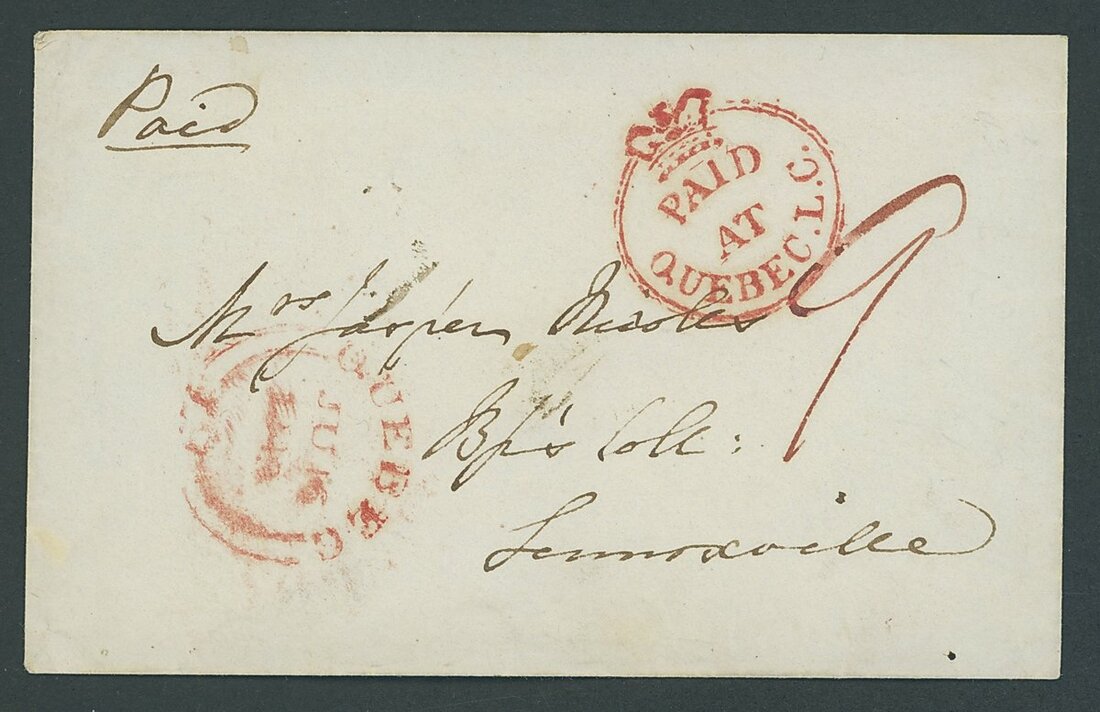 Paid
PAID
AT
QUEBEC. L.C.
9
Mrs Jasper Nicolls
Bp's Coll:
Lennoxville
QUEBEC
JU